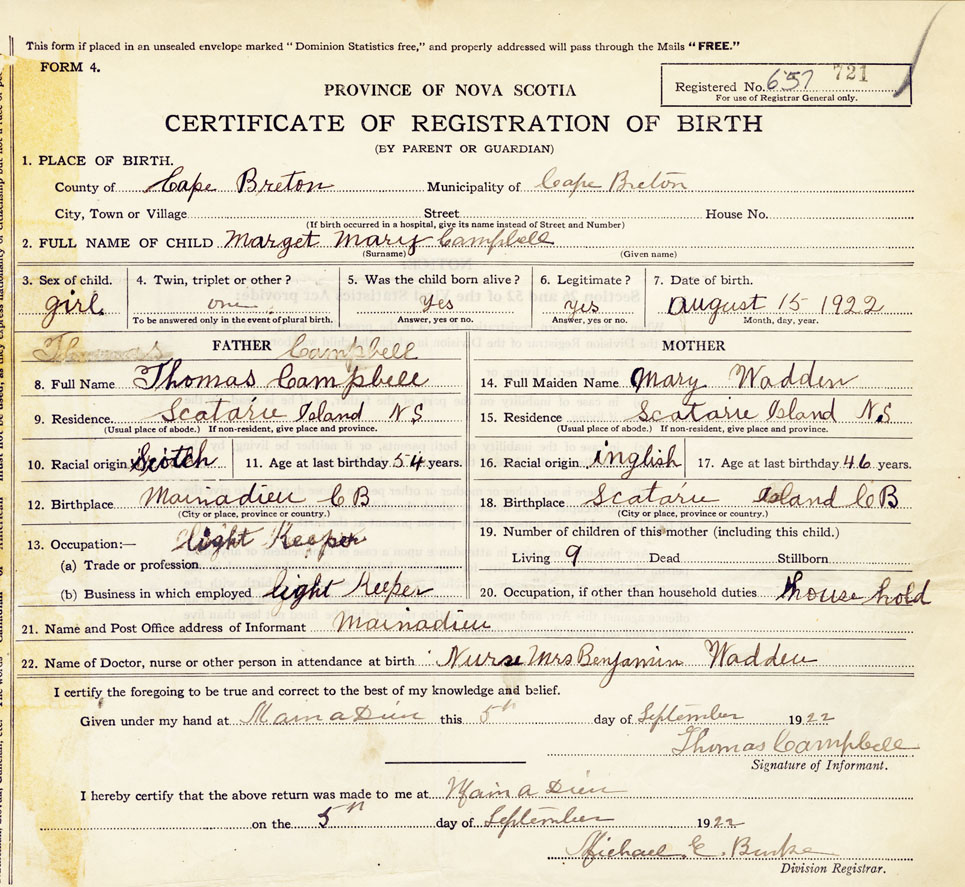 This form if placed in an unsealed envelope marked "Dominion Statistics free," and properly addressed will pass through the Mails "FREE."
FORM 4.
Registered No. 657 721
For use of Registrar General only.
PROVINCE OF NOVA SCOTIA
CERTIFICATE OF REGISTRATION OF BIRTH
(BY PARENT OR GUARDIAN)
1. PLACE OF BIRTH.
County of Cape Breton Municipality of Cape Breton
City, Town or Village Street House No.
(If birth occurred in a hospital, give its name instead of Street and Number)
2. FULL NAME OF CHILD Marget Mary Campbell
(Surname) (Given name)
3. Sex of child. 4. Twin, triplet or other? 5. Was the child born alive? 6. Legitimate? 7. Date of birth.
girl. one yes yes august 15 1922
To be answered only in the event of plural birth. Answer, yes or no. Answer, yes or no. Month, day, year.
Thomas FATHER Campbell MOTHER
8. Full Name Thomas Campbell 14. Full Maiden Name Mary Wadden
9. Residence Scatarie Island NS 15. Residence Scatarie Island N.S
(Usual place of abode.) If non-resident, give place and province. (Usual place of abode.) If non-resident, give place and province.
10. Racial origin Scotch 11. Age at last birthday 54 years. 16. Racial origin inglish 17. Age at last birthday 46 years.
12. Birthplace Mainadieu CB 18. Birthplace Scatarie Island CB
(City or place, province or country.) (City or place, province or country.)
13. Occupation:— light Keeper 19. Number of children of this mother (including this child.)
(a) Trade or profession Living 9 Dead Stillborn
(b) Business in which employed light Keeper 20. Occupation, if other than household duties house hold
21. Name and Post Office address of Informant Mainadieu
22. Name of Doctor, nurse or other person in attendance at birth Nurse Mrs Benjamin Wadden
I certify the foregoing to be true and correct to the best of my knowledge and belief.
Given under my hand at Main a Dieu this 5th day of September 1922
Thomas Campbell
Signature of Informant.
I hereby certify that the above return was made to me at Main a Dieu
on the 5th day of September 1922
Michael E. Burke
Division Registrar.